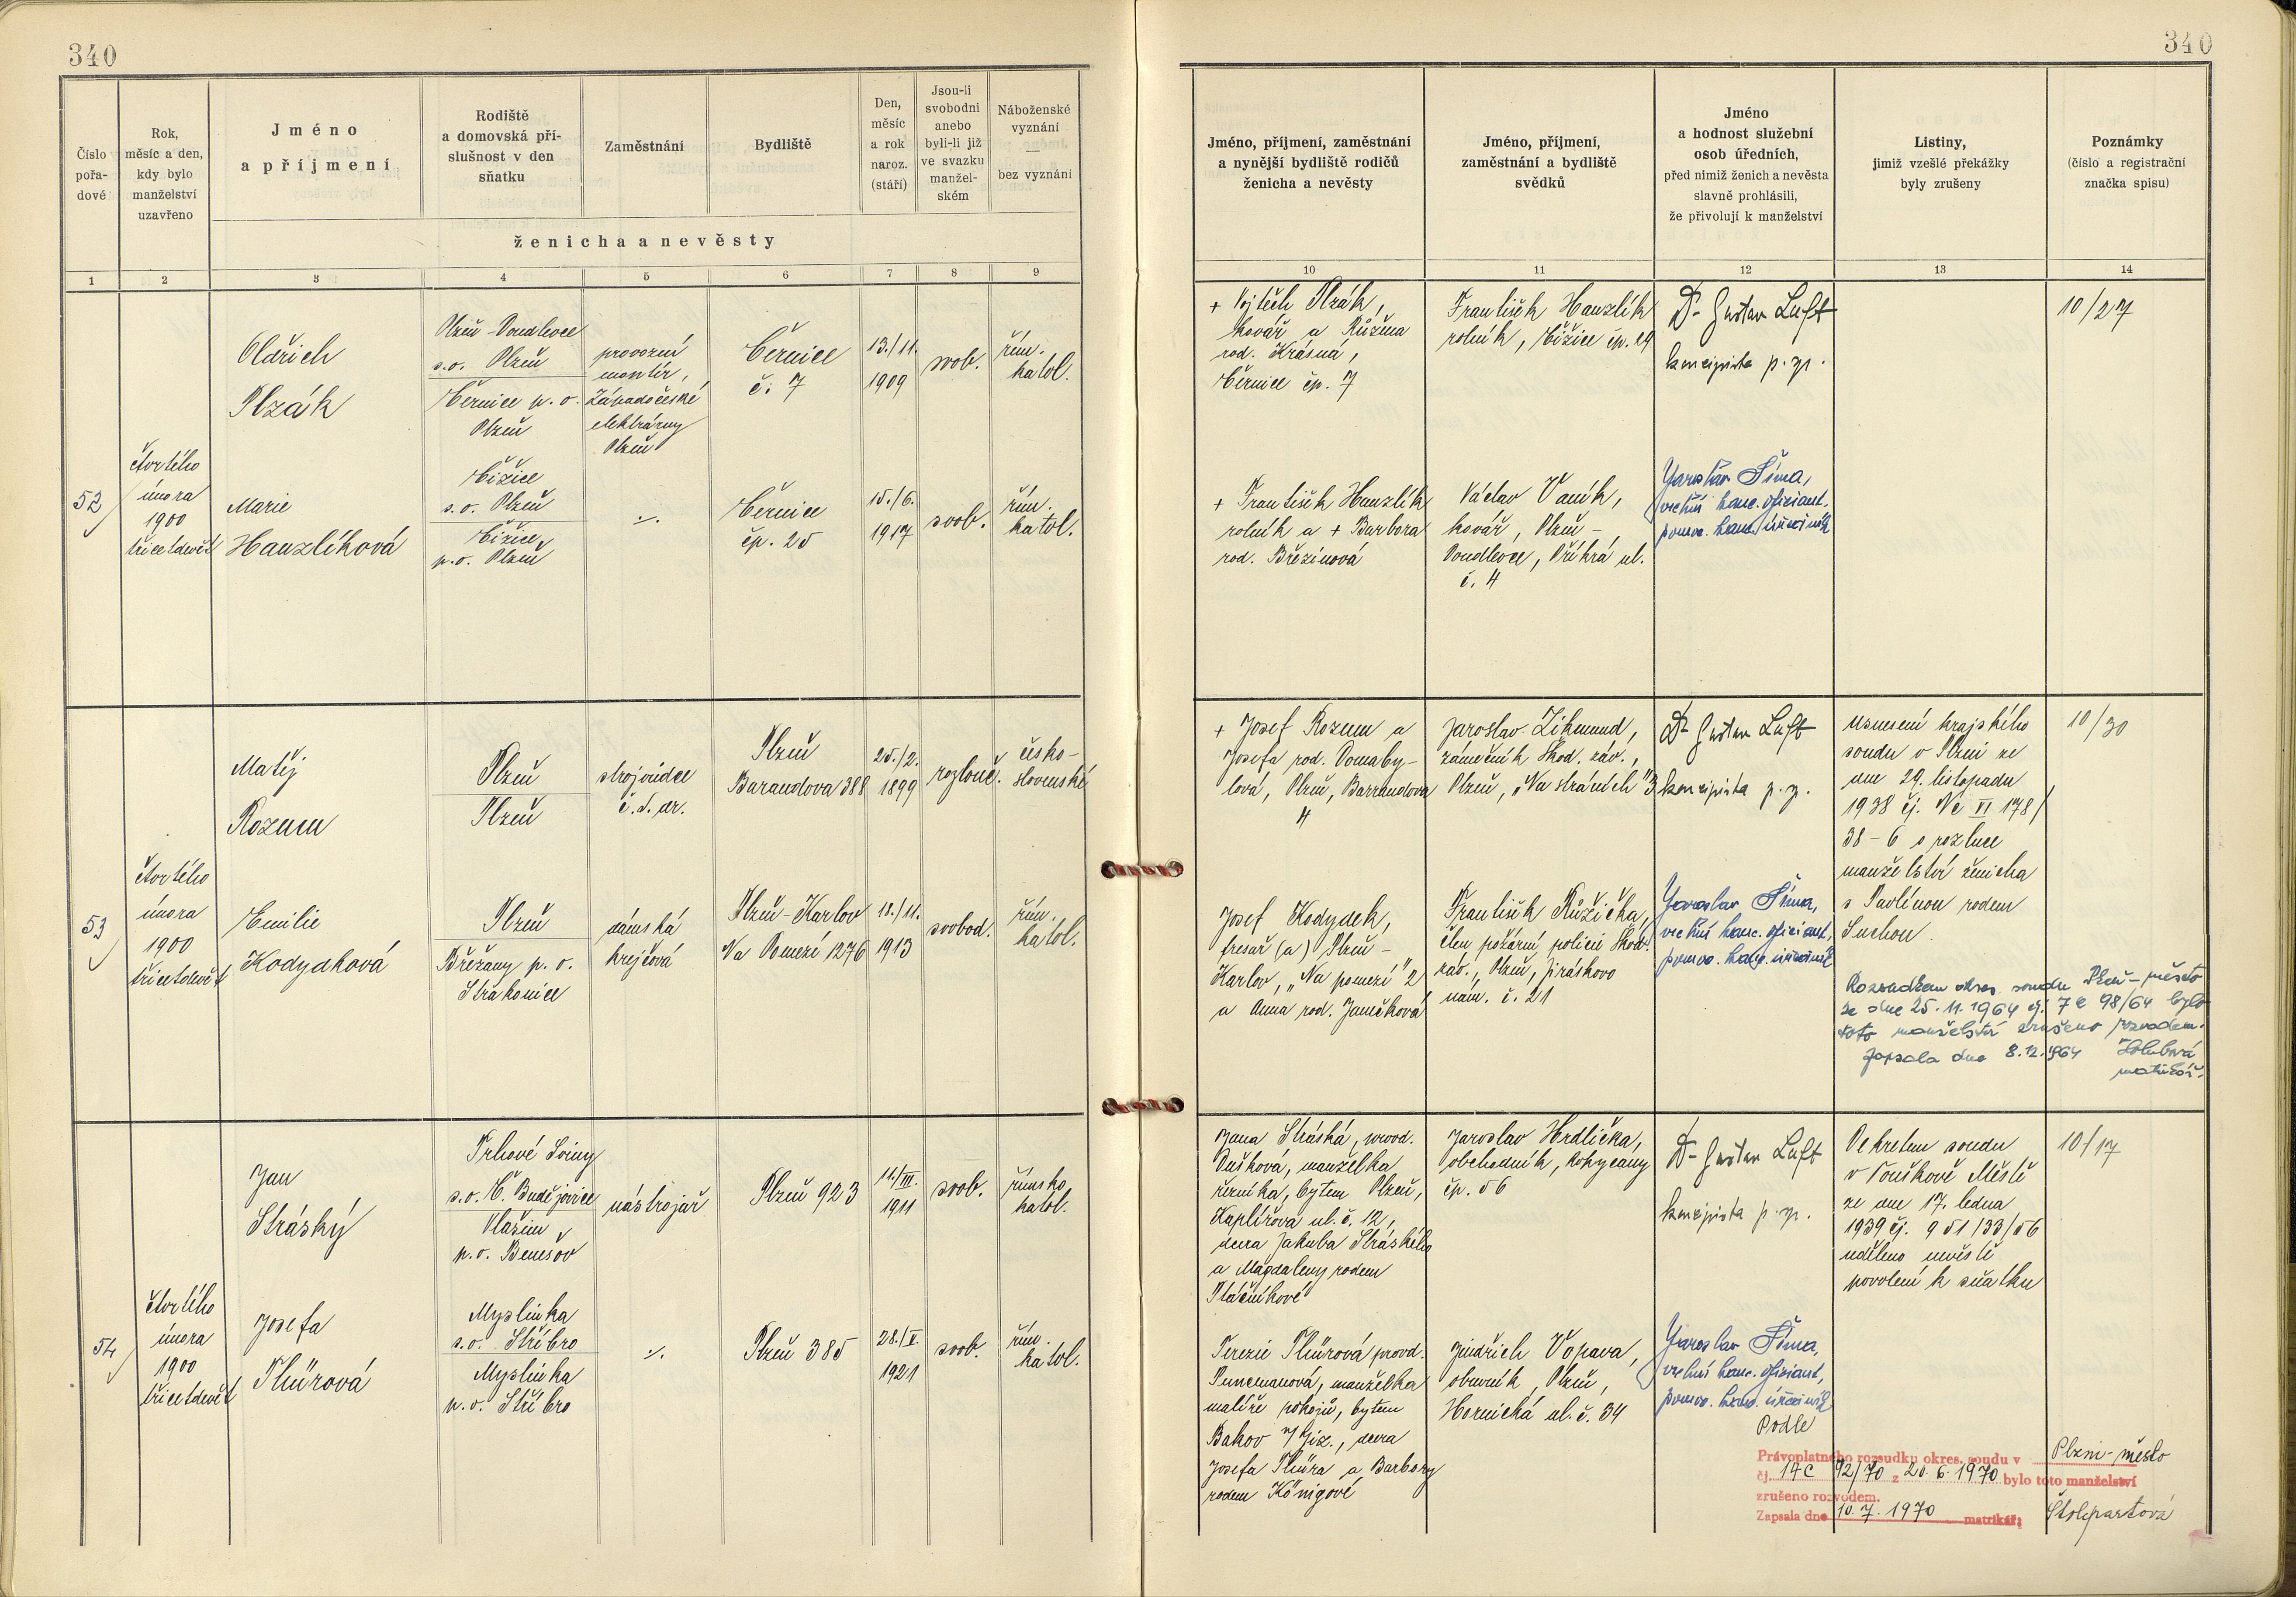 340
340
Číslo
pořa-
dové
Rok,
měsíc a den,
kdy bylo
manželství
uzavřeno
Jméno
a příjmení
Rodiště
a domovská pří-
slušnost v den
sňatku
Zaměstnání
Bydliště
Den,
měsíc
a rok
naroz.
(stáří)
Jsou-li
svobodni
anebo
byli-li již
ve svazku
manžel-
ském
Náboženské
vyznání
—
bez vyznání
ženicha a nevěsty
Jméno, příjmení, zaměstnání
a nynější bydliště rodičů
ženicha a nevěsty
Jméno, příjmení,
zaměstnání a bydliště
svědků
Jméno
a hodnost služební
osob úředních,
před nimiž ženich a nevěsta
slavně prohlásili,
že přivolují k manželství
Listiny,
jimiž vzešlé překážky
byly zrušeny
Poznámky
(číslo a registrační
značka spisu)
1 2 3 4 5 6 7 8 9
10 11 12 13 14
52
čtvrtého
února
1900
třicetdevět
Oldřich
Plzák
Plzeň-Doudlevce
s.o. Plzeň
Černice p. o.
Plzeň
provozní
montér,
Západočeské
elektrárny
Plzeň
Černice
č. 7
13./11.
1909
svob.
řím.
katol.
Marie
Hanzlíková
Čižice
s.o. Plzeň
Čižice,
p.o. Plzeň
./.
Černice
čp. 25
15./6.
1917
svob.
řím.
katol.
+ Vojtěch Plzák,
kovář a Růžena
rod. Krásná,
Černice čp. 7
František Hanzlík
rolník, Čižice čp. 29
Dr Gustav Luft
koncipista p. sp.
10/27
+ František Hanzlík
rolník a + Barbora
rod. Březinová
Václav Vaník,
kovář, Plzeň-
Doudlevce, Příkrá ul.
č. 4
Jaroslav Šíma,
vrchní kanc. oficiant,
pomoc. kanc. úředník
53
čtvrtého
února
1900
třicetdevět
Matěj
Rozum
Plzeň
Plzeň
strojvůdce
č. s. dr.
Plzeň
Barandova 388
25./2.
1899
rozlouč.
česko-
slovenské
Emilie
Kodydková
Plzeň
Břežany p. o.
Strakonice
dámská
krejčová
Plzeň-Karlov
Na Pomezí 1276
18./11.
1913
svobod.
řím.
katol.
+ Josef Rozum a
Josefa rod. Domaby-
lová, Plzeň, Barrandova
4
Jaroslav Zikmund,
zámečník Škod. záv.,
Plzeň, „Na stráních" 3
Dr Gustav Luft
koncipista p. sp.
Usnesení krajského
soudu v Plzni ze
dne 29. listopadu
1938 čj. Nc VI 178/
38-6 o rozluce
manželství ženicha
s Pavlínou rodem
Suchou.
10/30
Josef Kodydek,
fresař (a) Plzeň-
Karlov, „Na pomezí" 2
a Anna rod. Janečková
František Růžička,
člen požární policie Škod.
záv., Plzeň, Jiráskovo
nám. č. 21
Jaroslav Šíma,
vrchní kanc. oficiant,
pomoc. kanc. úředník
Rozsudkem okres. soudu Plzeň-město
ze dne 25. 11. 1964 čj. 7 C 98/64 bylo
toto manželství zrušeno rozvodem.
Zapsala dne 8. 12. 1964 Holubová
matrikář.
54
čtvrtého
února
1900
třicetdevět
Jan
Stráský
Trhové Sviny
s.o. Č. Budějovice
Vlašim
p.o. Benešov
nástrojař
Plzeň 923
11./III.
1911
svob.
římsko
katol.
Josefa
Thürová
Myslinka
s.o. Stříbro
Myslinka
p.o. Stříbro
./.
Plzeň 385
28./V.
1921
svob.
řím.
katol.
Jana Stráská, provd.
Dušková, manželka
řezníka, bytem Plzeň,
Kaplířova ul. č. 12,
dcera Jakuba Stráského
a Magdaleny rodem
Ptáčníkové
Jaroslav Hrdlička,
obchodník, Rokycany
čp. 56
Dr Gustav Luft
koncipista p. sp.
Dekretem soudu
v Touškově Městě
ze dne 17. ledna
1939 čj. 951/33/56
uděleno nevěstě
povolení k sňatku
10/17
Terezie Thürová provd.
Punemanová, manželka
malíře pokojů, bytem
Bakov n/Jiz., dcera
Josefa Thüra a Barbory
rodem Königové
Jindřich Vopava,
obuvník, Plzeň,
Hornická ul. č. 34
Jaroslav Šíma,
vrchní kanc. oficiant,
pomoc. kanc. úředník
Podle
Právoplatného rozsudku okres. soudu v Plzni-město
čj. 14C 92/70 z 20. 6. 1970 bylo toto manželství
zrušeno rozvodem.
Zapsala dne 10. 7. 1970 matrikář: Štolpartová